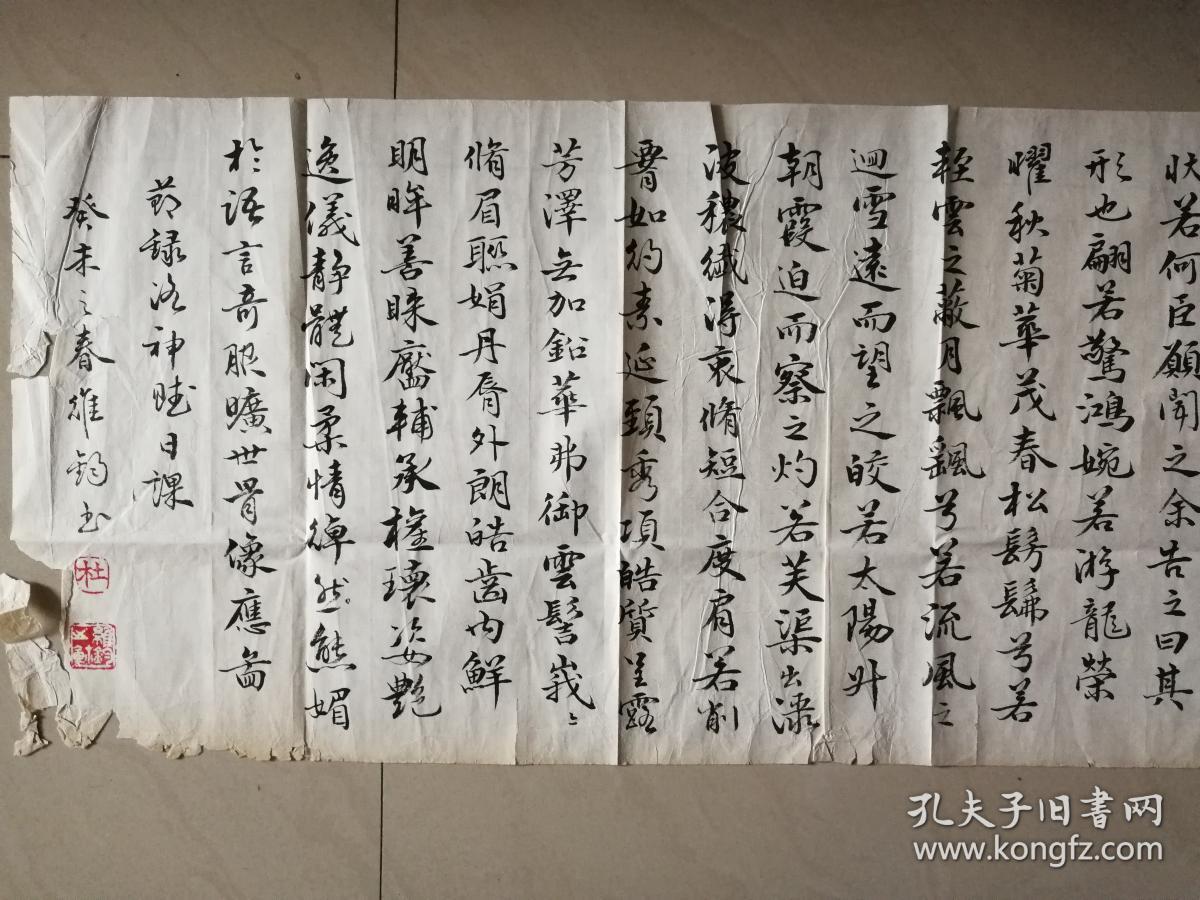 狀若何臣願聞之余告之曰其
形也翩若驚鴻婉若游龍榮
曜秋菊華茂春松髣髴兮若
輕雲之蔽月飄飖兮若流風之
迴雪遠而望之皎若太陽升
朝霞迫而察之灼若芙渠出淥
波穠纖得衷脩短合度肩若削
署如約素延頸秀項皓質呈露
芳澤無加鉛華弗御雲髻峩〻
脩眉聯娟丹脣外朗皓齒內鮮
明眸善睞靨輔承權瓌姿艷
逸儀靜體閑柔情綽然態媚
於語言奇服曠世骨像應啚
節錄洛神賦日課
癸未之春雄鈞書
杜
孔夫子旧书网
www.kongfz.com